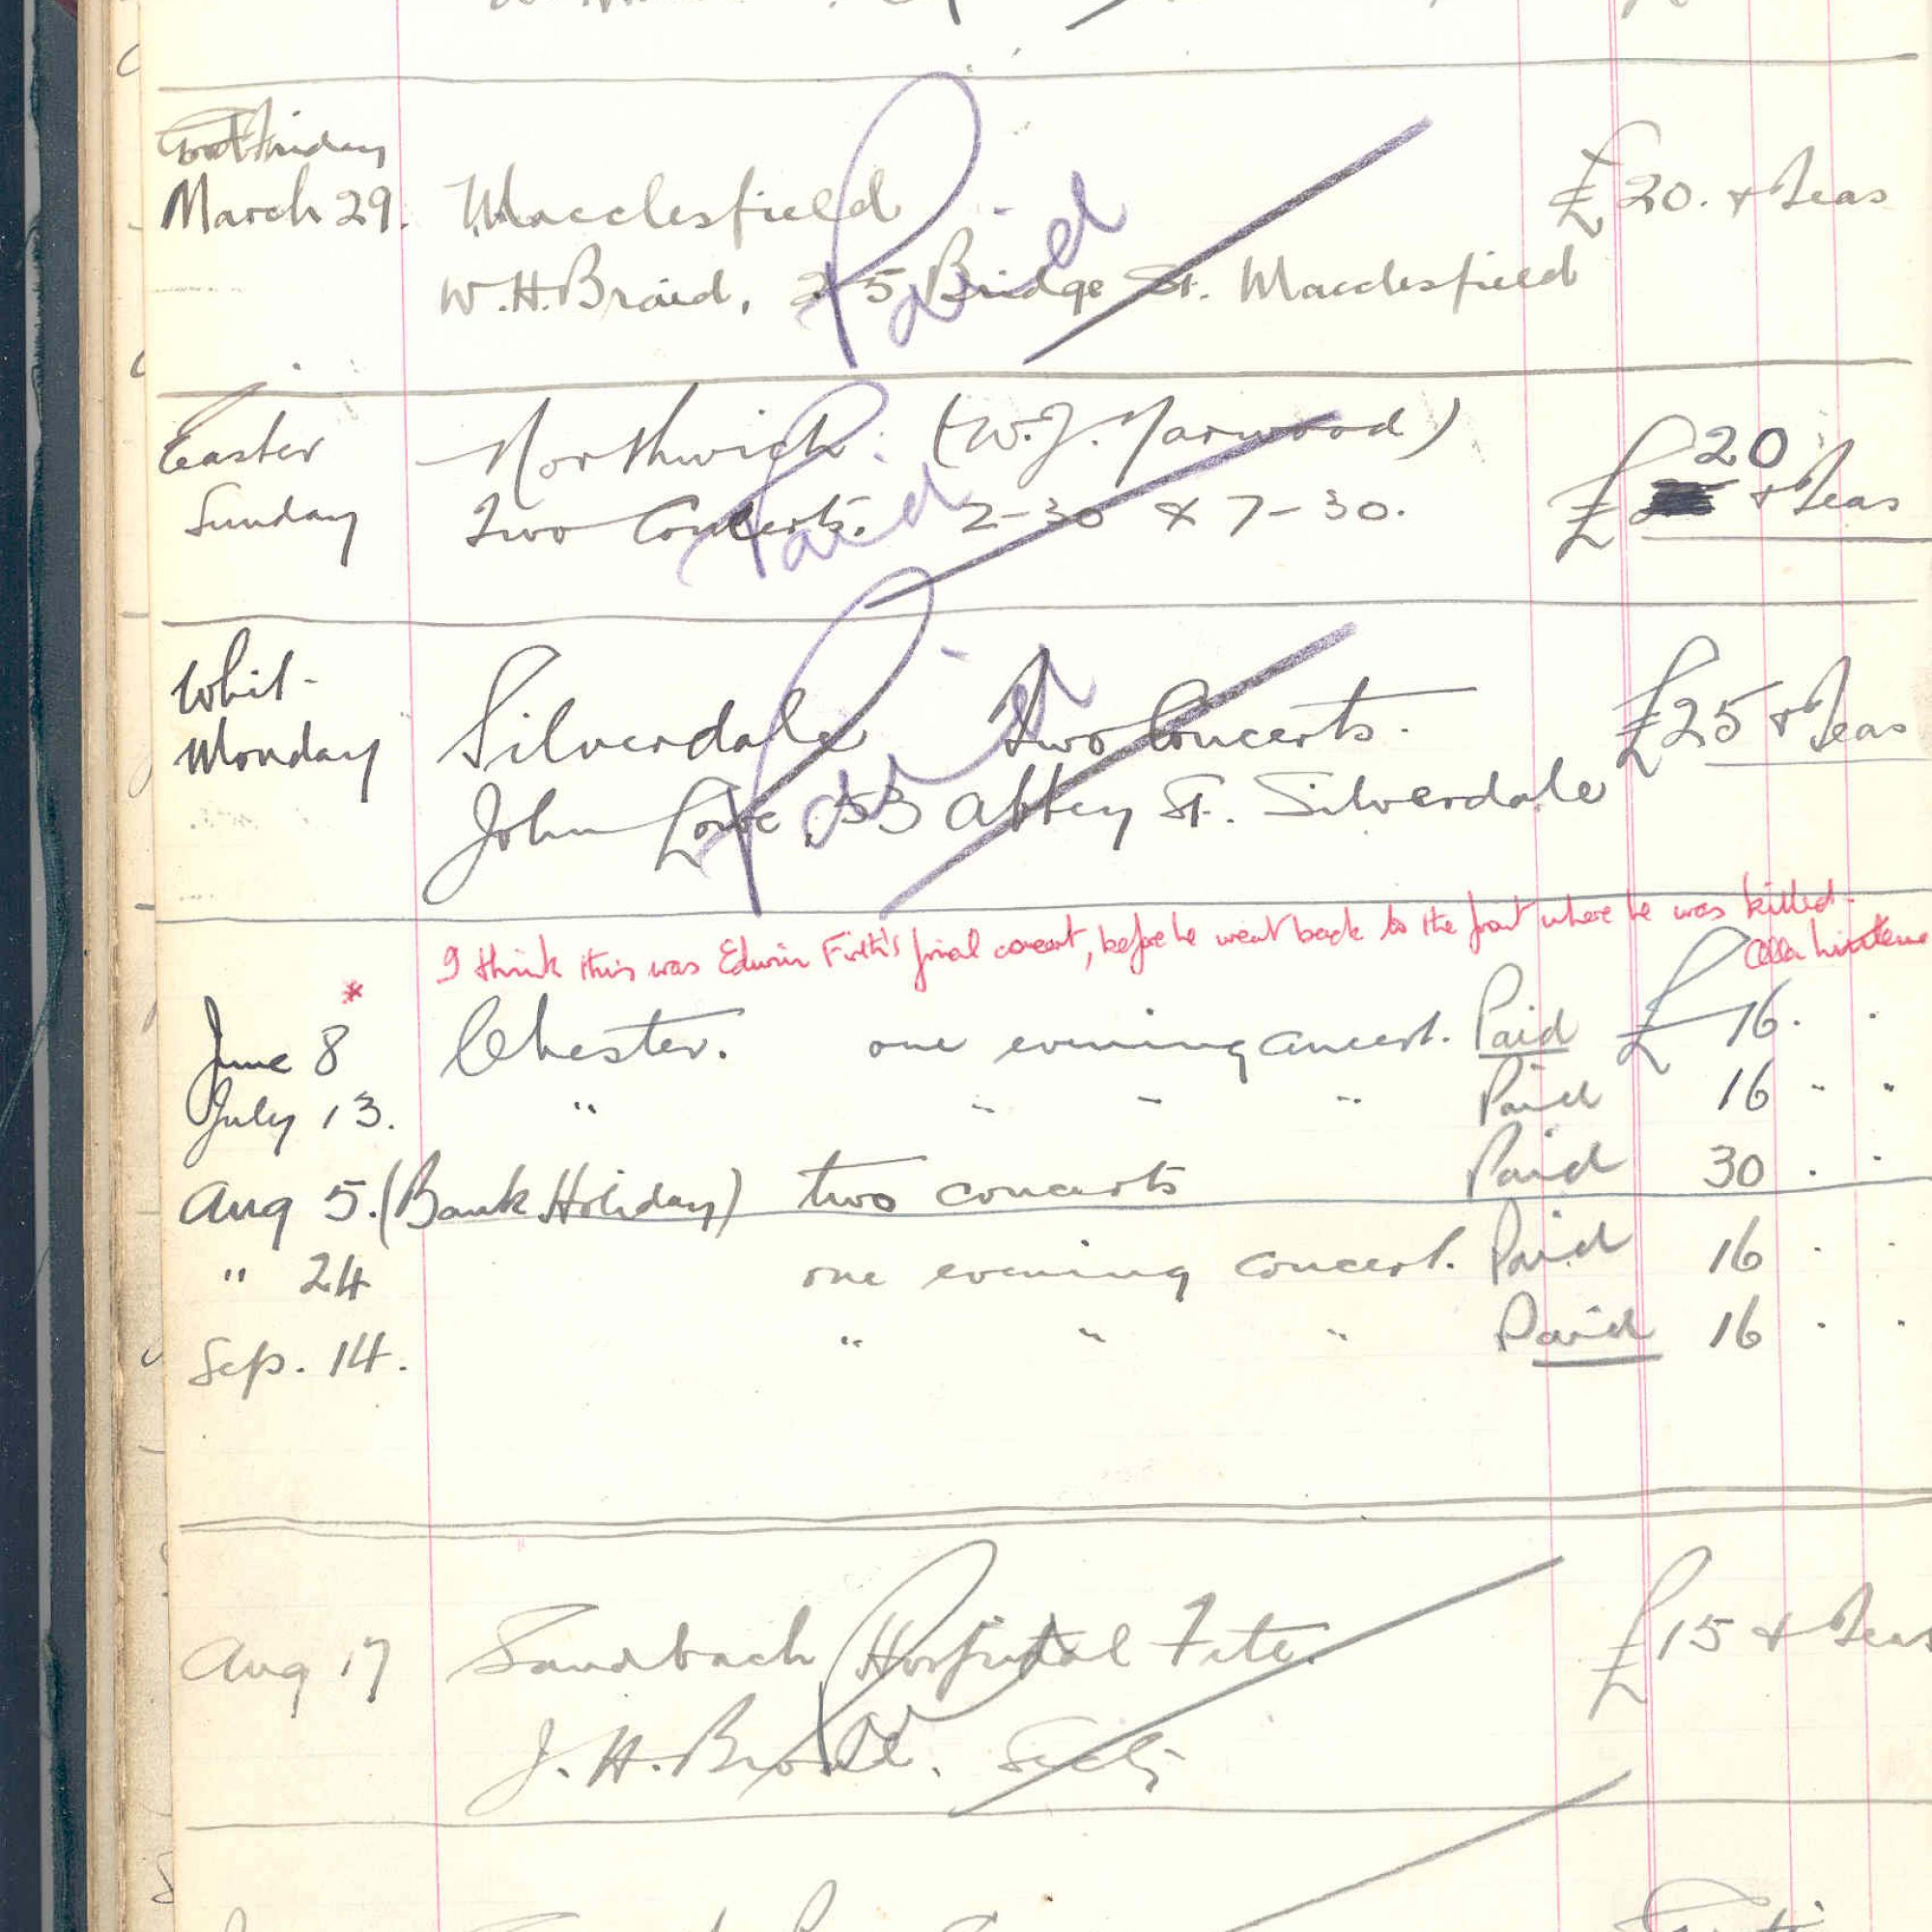 Good Friday
March 29. Macclesfield £20. + Teas
W.H. Braid, 25 Bridge St. Macclesfield
Paid
Easter Northwich. (W.J. Yarwood) 20
Sunday Two Concerts. 2-30 & 7-30. £ + Teas
Paid
Whit-
Monday Silverdale Two Concerts. £25 + Teas
John Lowe, 53 Abbey St. Silverdale
Paid
I think this was Edwin Firth's final concert, before he went back to the front where he was killed.
*
June 8 Chester. one evening concert. Paid £16. .
July 13. " " " " Paid 16 " "
Aug 5. (Bank Holiday) two concerts Paid 30 . .
" 24 one evening concert. Paid 16 . .
Sep. 14. " " " Paid 16 . .
Aug 17 Sandbach Hospital Fete. £15 + Teas
J.H. Secty
Paid